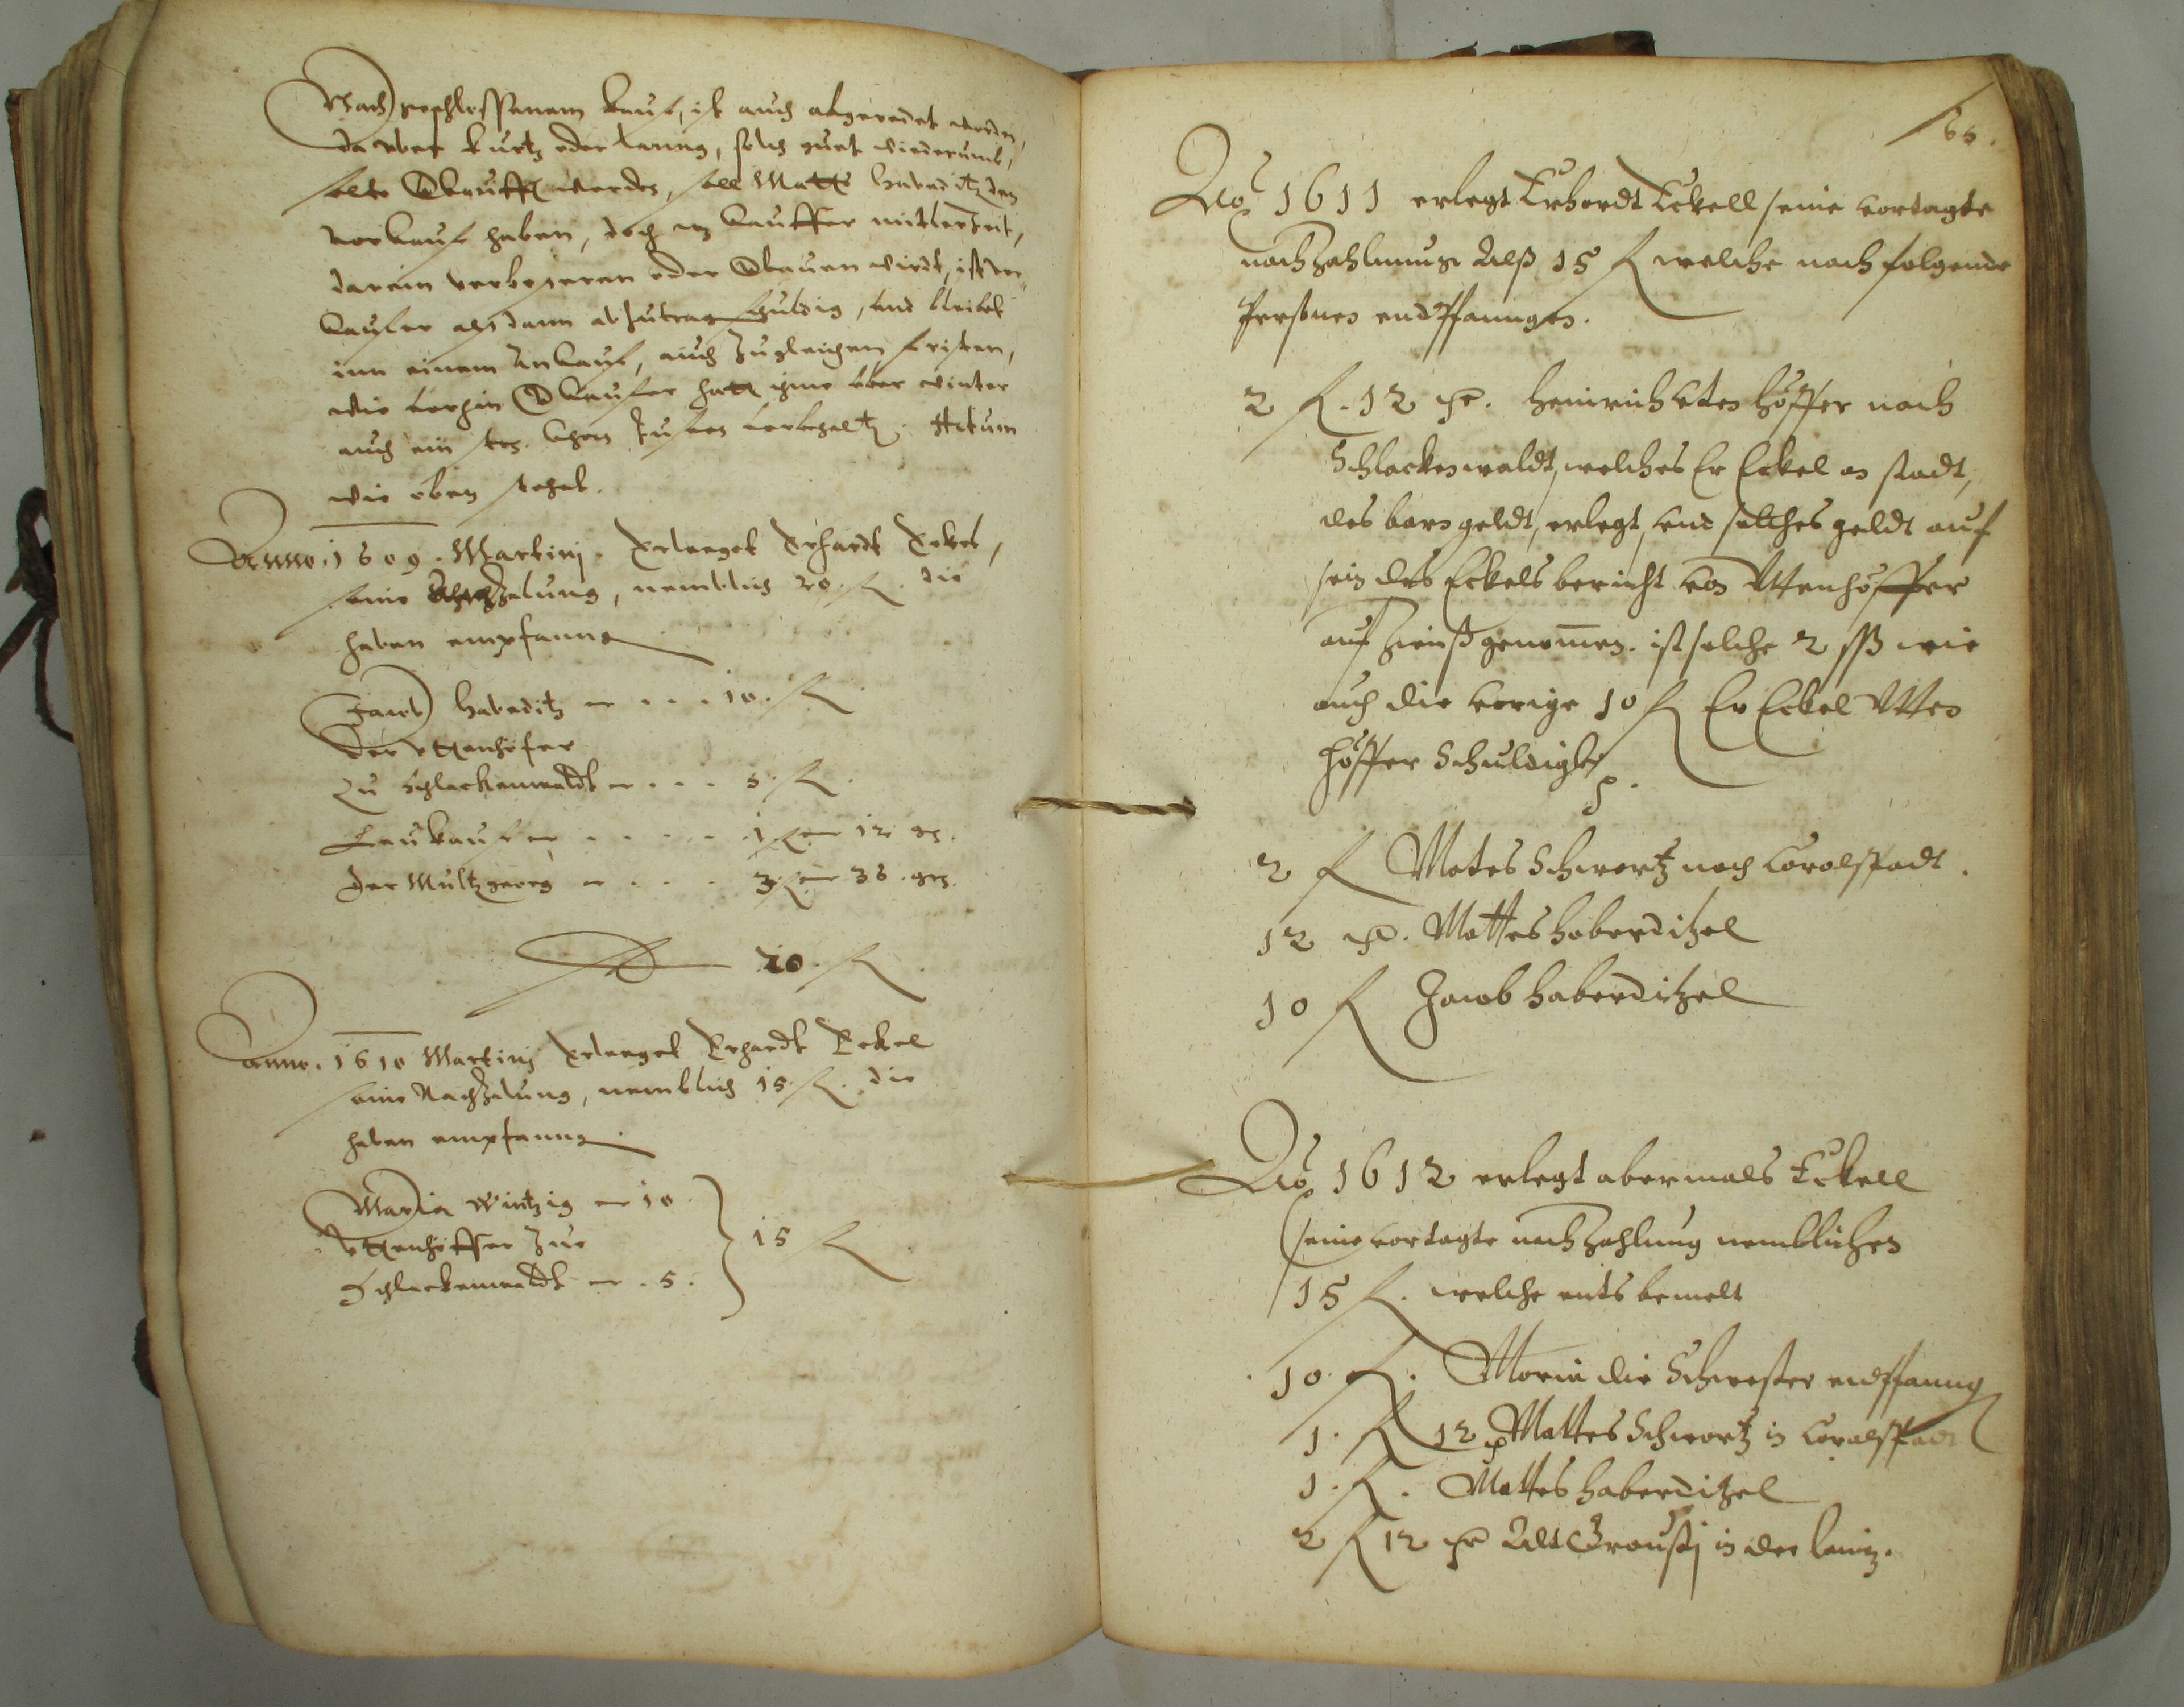 Nach geschlossenem kauf, ist auch abgeredet worden,
da uber kurtz oder lanng, solch guet wiederumb,
solte verkaufft werden, soll Matts Habaditz den
vorkauf haben, doch was kauffer mitlerzeit,
darein verbesseren oder erbauen wirdt, ist ver¬
kaufer alsdann abzutragen schuldig, und bleibet
inn einem Ankauf, auch zugleichen fristen,
wie vorhin Verkaufer hatt ihme uber winter
auch ein vorbehaltn. Actum
wie oben stehet.
Anno. 1609. Martinj. Erlaeget Erhardt Eckel,
seine Nachzalung, nemblich 20. fl. die
haben empfanng
Jacob Habaditz er . . . 10. fl
Der Uttenhöfer
zu Schlackenwaldt er . . . 5. fl.
Leukauf er . . . . . 1 fl 12 gr.
Der Multzgeorg er . . . . 3 fl 36. grs.
20. fl
Anno. 1610 Martinj Erlaeget Erhardt Eckel
seine Nachzalung, nemblich 15. fl. die
haben empfanng.
Maria Wintzig er 10
Uttenhöffer zue
Schlackenwaldt er . 5. 15 fl
65.
Ao 1611 erlegt Erhardt Eckell seine vertagte
nachzahlunng Alß 15 fl welche nach folgende
Personen endtpfanngen.
2 fl. 12 gr. Heinrich Uten höffer nach
Schlackenwaldt, welches Er Eckel an stadt,
des barn geldt, erlegt, und solches geldt auf
sein des Eckels bericht von Uttenhöffer
auf Zinß genommen. ist solche 2 ß wie
auch die vorige 10 fl Er Eckel Utten
höffer Schuldig
2 fl Mates Schwartz nach Carolstadt.
12 gr. Mattes Haberditzel
10 fl Jacob Haberditzel
Ao 1612 erlegt abermals Eckell
seine vertagte nachzahlung nemblichen
15 fl. welche unts bemelt
10. fl. Maria die Schwester endtpfanng
1. fl 12 gr Mattes Schwartz in Carolstadt
1. fl. Mattes Haberditzel
2 fl 12 gr Alt in der